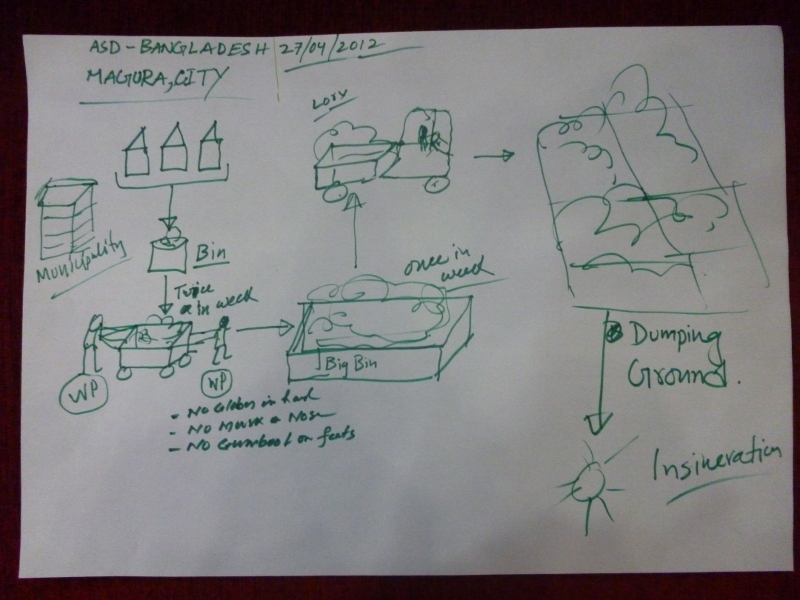 ASD-BANGLADESH 27/04/2012
MAGURA, CITY
Lory
Municipality
Bin
Twice
in week
once in
week
Big Bin
WP
WP
- No Globes in hand
- No Mask on Nose
- No Gumboot on feets
Dumping
Ground.
Insineration